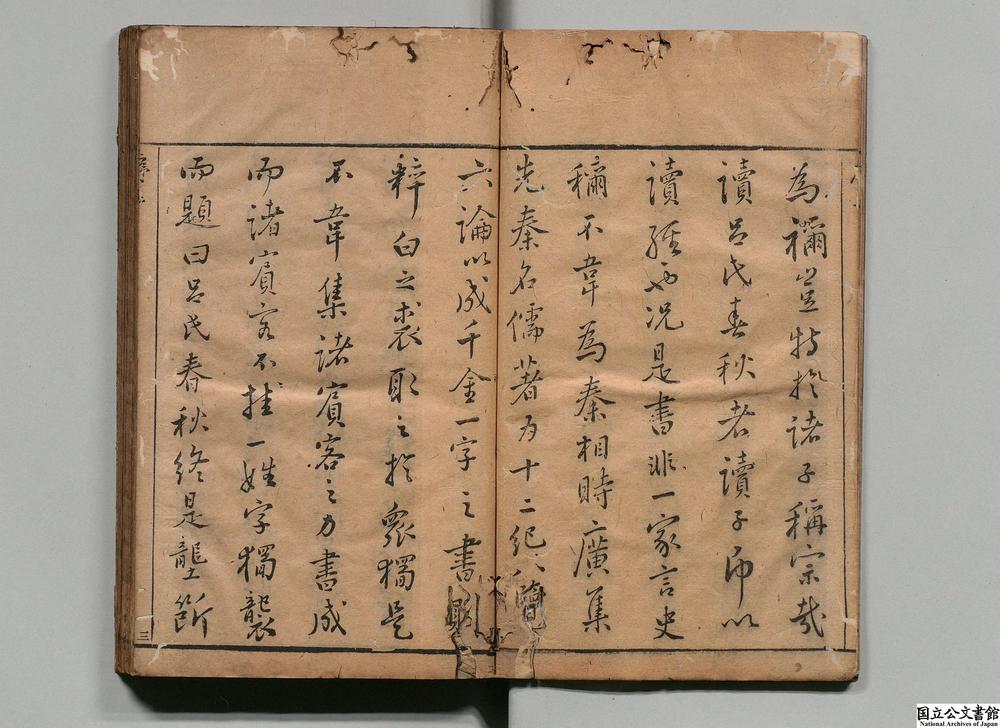 為禰豈特於諸子稱宗哉
讀呂氏春秋者讀子即以
讀經也況是書非一家言史
稱不韋為秦相時廣集
先秦名儒著為十二紀八覽
六論以成千金一字之書則
粹白之裘取之於眾獨是
不韋集諸賓客之力書成
而諸賓客不挂一姓字獨襲
而題曰呂氏春秋終是壟斷
三
国立公文書館
National Archives of Japan